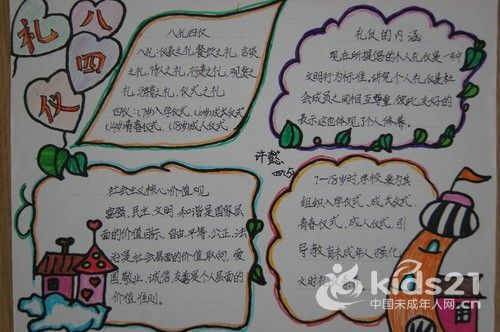 八
礼
四
仪
八礼四仪
八礼:仪表之礼、餐饮之礼、言谈
之礼、待人之礼、行走之礼、观赏之
礼、游览之礼、仪式之礼
四仪:(7岁)入学仪式、(10岁)成长仪式
(14岁)青春仪式、(18岁)成人仪式
礼仪的内涵
现在所提倡的个人礼仪是一种
文明行为标准,讲究个人礼仪是社
会成员之间相互尊重,彼此友好的
表示这也体现了个人修养。
许懿
四
社会主义核心价值观
富强、民主、文明、和谐是国家层
面的价值目标,自由、平等、公正、法
治是社会层面的价值取向,爱
国、敬业、诚信、友善是个人层面的
价值准则。
7—18岁时,学校要为其
组织入学仪式、成长仪式、
青春仪式、成人仪式,引
导教育未成年人强化
文明
kids21
中国未成年人网.cn